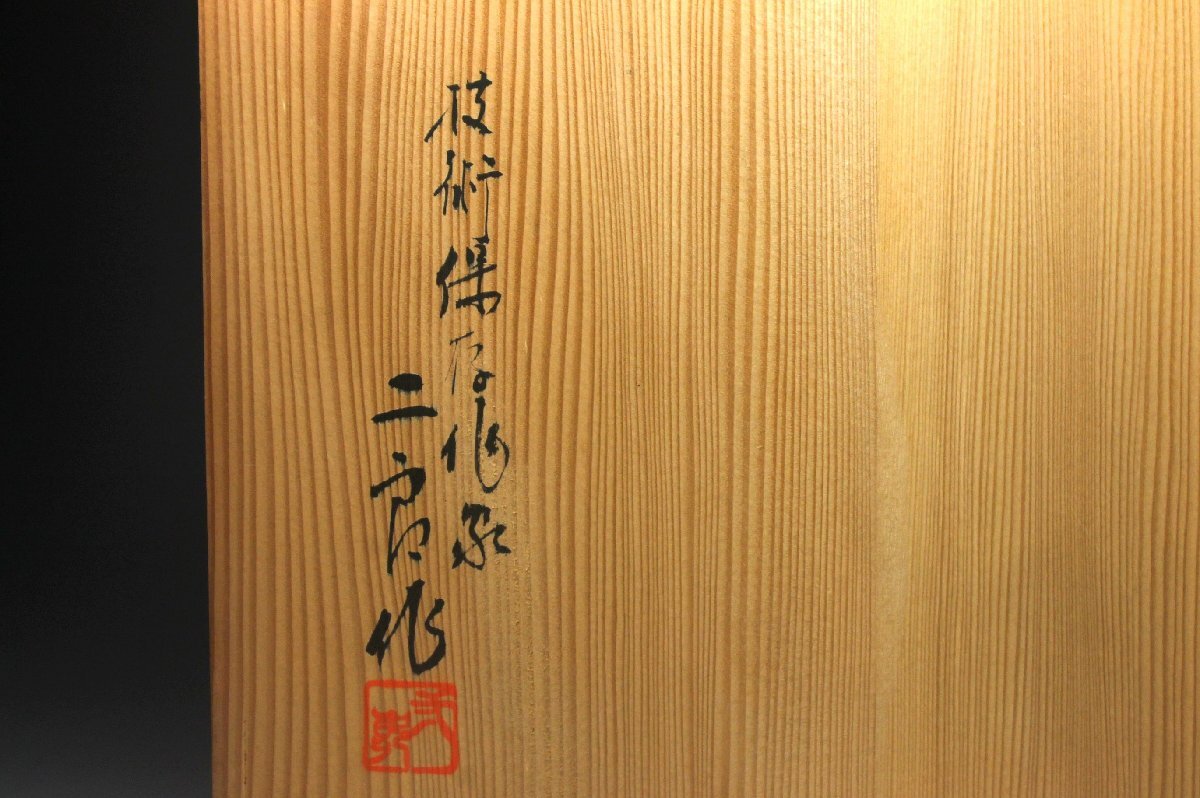 技術保存作家
二郎作